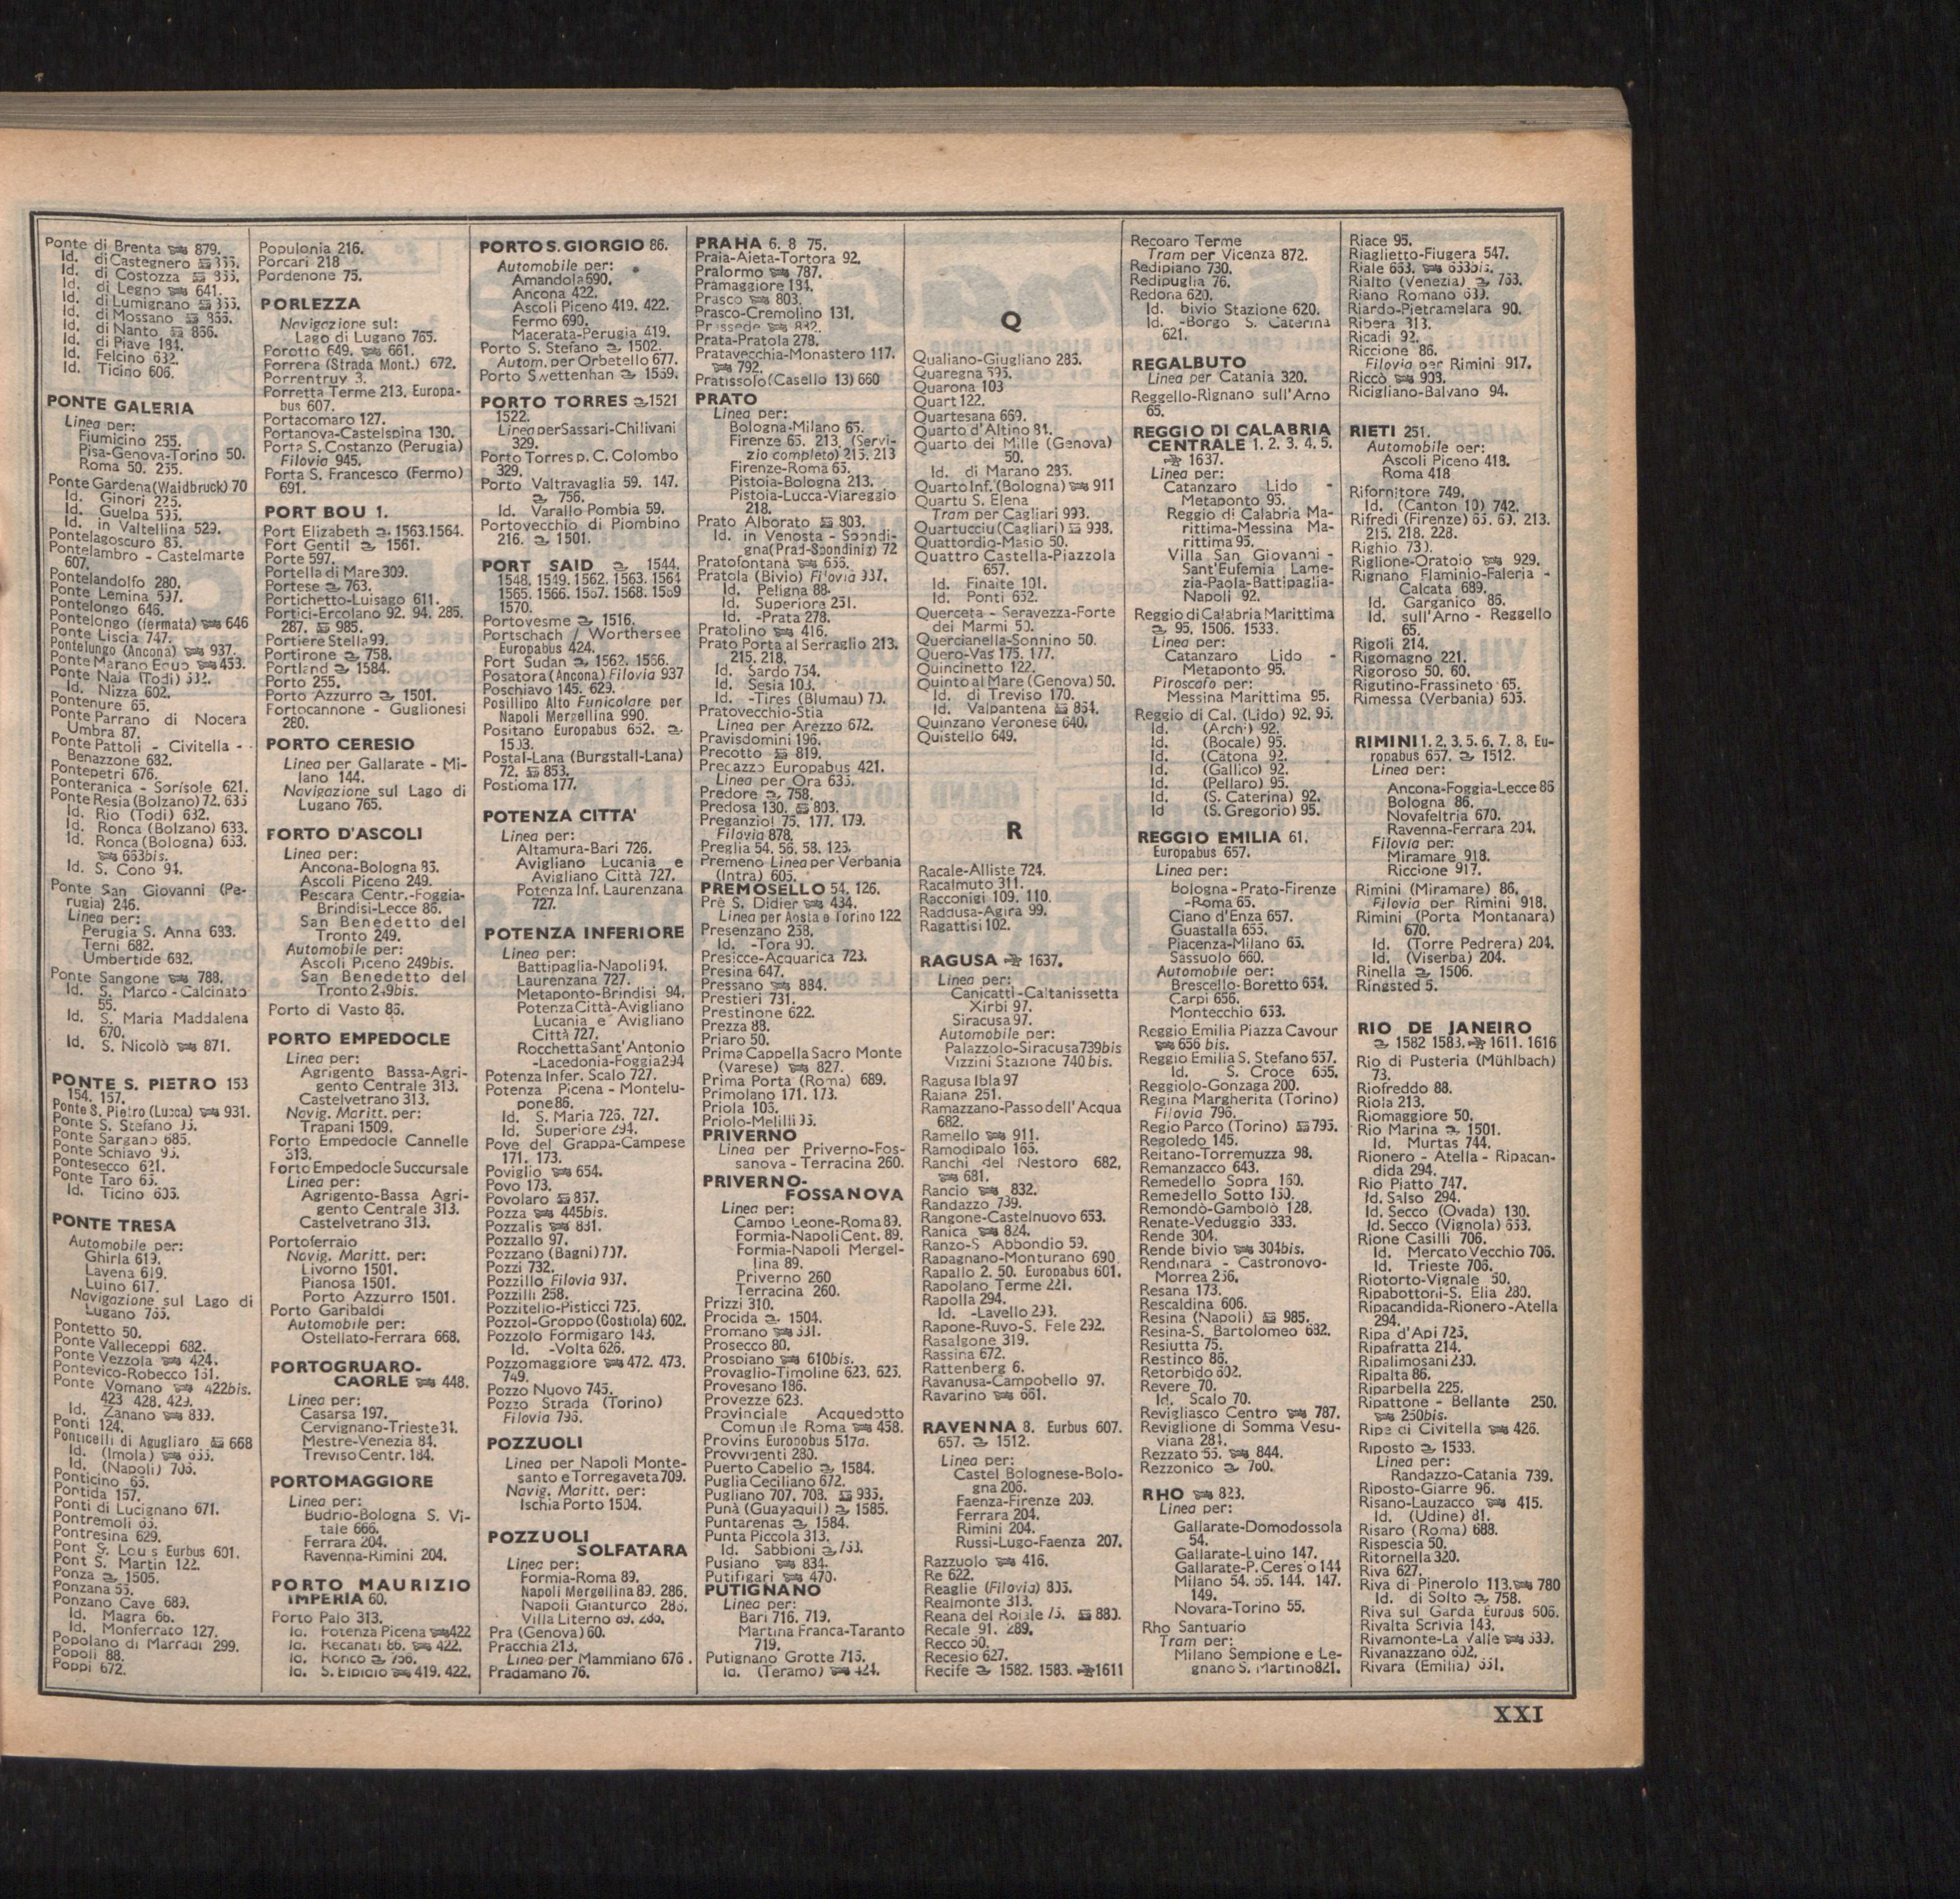 Ponte di Brenta 879.
Id. di Castegnero
Id. di Costozza
Id. di Legno 641.
Id. di Lumignano
Id. di Mossano
Id. di Nanto 856.
Id. di Piave 184.
Id. Felcino 632.
Id. Ticino 606.
PONTE GALERIA
Linea per:
Fiumicino 255.
Pisa-Genova-Torino 50.
Roma 50. 255.
Ponte Gardena (Waidbruck) 70
Id. Ginori 225.
Id. Guelpa 595.
Id. in Valtellina 529.
Pontelagoscuro 85.
Pontelambro - Castelmarte
607.
Pontelandolfo 280.
Ponte Lemina 597.
Pontelongo 646.
Pontelongo (fermata) 646
Ponte Liscia 747.
Pontelungo (Ancona) 937.
Ponte Marano Equo 453.
Ponte Naia (Todi)
Id. Nizza 602.
Pontenure 65.
Ponte Parrano di Nocera
Umbra 87.
Ponte Pattoli - Civitella -
Benazzone 682.
Pontepetri 676.
Ponteranica - Sorisole 621.
Ponte Resia (Bolzano) 72. 635
Id. Rio (Todi) 632.
Id. Ronca (Bolzano) 633.
Id. Ronca (Bologna) 653.
653bis.
Id. S. Cono 94.
Ponte San Giovanni (Pe-
rugia) 246.
Linea per:
Perugia S. Anna 683.
Terni 682.
Umbertide 682.
Ponte Sangone 788.
Id. S. Marco - Calcinato
55.
Id. S. Maria Maddalena
670.
Id. S. Nicolò 871.
PONTE S. PIETRO 153
154. 157.
Ponte S. Pietro (Lucca) 931.
Ponte S. Stefano
Ponte Sargano 685.
Ponte Schiavo 95.
Pontesecco 621.
Ponte Taro 65.
Id. Ticino 605.
PONTE TRESA
Automobile per:
Ghirla 619.
Lavena 619.
Luino 617.
Navigazione sul Lago di
Lugano 765.
Pontetto 50.
Ponte Valleceppi 682.
Ponte Vezzola 424.
Pontevico-Robecco 131.
Ponte Vomano 422bis.
423 428. 429.
Id. Zanano 839.
Ponti 124.
Ponticelli di Agugliaro 668
Id. (Imola)
Id. (Napoli) 705.
Ponticino 65.
Pontida 157.
Ponti di Lucignano 671.
Pontremoli 65.
Pontresina 629.
Pont S. Louis Eurbus 601.
Pont S. Martin 122.
Ponza 1505.
Ponzana 55.
Ponzano Cave 689.
Id. Magra 66.
Id. Monferrato 127.
Popolano di Marradi 299.
Popoli 88.
Poppi 672.
Populonia 216.
Porcari 218
Pordenone 75.
PORLEZZA
Navigazione sul:
Lago di Lugano 765.
Porotto 649. 661.
Porrena (Strada Mont.) 672.
Porrentruy 3.
Porretta Terme 213. Europa-
bus 607.
Portacomaro 127.
Portanova-Castelspina 130.
Porta S. Costanzo (Perugia)
Filovia 945.
Porta S. Francesco (Fermo)
691.
PORT BOU 1.
Port Elizabeth 1563.1564.
Port Gentil 1561.
Porte 597.
Portella di Mare 309.
Portese 763.
Portichetto-Luisago 611.
Portici-Ercolano 92. 94. 285.
287. 985.
Portiere Stella 99.
Portirone 758.
Portland 1584.
Porto 255.
Porto Azzurro 1501.
Fortocannone - Guglionesi
280.
PORTO CERESIO
Linea per Gallarate - Mi-
lano 144.
Navigazione sul Lago di
Lugano 765.
FORTO D'ASCOLI
Linea per:
Ancona-Bologna 85.
Ascoli Piceno 249.
Pescara Centr.-Foggia-
Brindisi-Lecce 86.
San Benedetto del
Tronto 249.
Automobile per:
Ascoli Piceno 249bis.
San Benedetto del
Tronto 249bis.
Porto di Vasto 85.
PORTO EMPEDOCLE
Linea per:
Agrigento Bassa-Agri-
gento Centrale 313.
Castelvetrano 313.
Navig. Maritt. per:
Trapani 1509.
Porto Empedocle Cannelle
313.
Forto Empedocle Succursale
Linea per:
Agrigento-Bassa Agri-
gento Centrale 313.
Castelvetrano 313.
Portoferraio
Navig. Maritt. per:
Livorno 1501.
Pianosa 1501.
Porto Azzurro 1501.
Porto Garibaldi
Automobile per:
Ostellato-Ferrara 668.
PORTOGRUARO-
CAORLE 448.
Linea per:
Casarsa 197.
Cervignano-Trieste 34.
Mestre-Venezia 84.
Treviso Centr. 184.
PORTOMAGGIORE
Linea per:
Budrio-Bologna S. Vi-
tale 666.
Ferrara 204.
Ravenna-Rimini 204.
PORTO MAURIZIO
IMPERIA 60.
Porto Palo 313.
Id. Potenza Picena 422
Id. Recanati 86. 422.
Id. Ronco 756.
Id. S. Elpidio 419. 422.
PORTO S. GIORGIO 86.
Automobile per:
Amandola 690.
Ancona 422.
Ascoli Piceno 419. 422.
Fermo 690.
Macerata-Perugia 419.
Porto S. Stefano 1502.
Autom. per Orbetello 677.
Porto Swettenhan 1559.
PORTO TORRES 1521
1522.
Linea per Sassari-Chilivani
329.
Porto Torres p. C. Colombo
329.
Porto Valtravaglia 59. 147.
756.
Id. Varallo Pombia 59.
Portovecchio di Piombino
216. 1501.
PORT SAID 1544.
1548. 1549. 1562. 1563. 1564
1565. 1566. 1567. 1568. 1569
1570.
Portovesme 1516.
Portschach / Worthersee
Europabus 424.
Port Sudan 1562. 1566.
Posatora (Ancona) Filovia 937
Poschiavo 145. 629.
Posillipo Alto Funicolare per
Napoli Mergellina 990.
Positano Europabus 652.
1503.
Postal-Lana (Burgstall-Lana)
72. 853.
Postioma 177.
POTENZA CITTA'
Linea per:
Altamura-Bari 726.
Avigliano Lucania e
Avigliano Città 727.
Potenza Inf. Laurenzana
727.
POTENZA INFERIORE
Linea per:
Battipaglia-Napoli 94.
Laurenzana 727.
Metaponto-Brindisi 94.
Potenza Città-Avigliano
Lucania e Avigliano
Città 727.
Rocchetta Sant'Antonio
-Lacedonia-Foggia 294
Potenza Infer. Scalo 727.
Potenza Picena - Montelu-
pone 86.
Id. S. Maria 726. 727.
Id. Superiore 294.
Pove del Grappa-Campese
171. 173.
Poviglio 654.
Povo 173.
Povolaro 867.
Pozza 445bis.
Pozzalis 881.
Pozzallo 97.
Pozzano (Bagni) 707.
Pozzi 732.
Pozzillo Filovia 937.
Pozzilli 258.
Pozzitello-Pisticci 725.
Pozzol-Groppo (Costiola) 602.
Pozzolo Formigaro 143.
Id. -Volta 626.
Pozzomaggiore 472. 473.
749.
Pozzo Nuovo 745.
Pozzo Strada (Torino)
Filovia 795.
POZZUOLI
Linea per Napoli Monte-
santo e Torregaveta 709.
Navig. Maritt. per:
Ischia Porto 1504.
POZZUOLI
SOLFATARA
Linea per:
Formia-Roma 89.
Napoli Mergellina 89. 286.
Napoli Gianturco 286.
Villa Literno 89. 286.
Pra (Genova) 60.
Pracchia 213.
Linea per Mammiano 676.
Pradamano 76.
PRAHA 6. 8 75.
Praia-Aieta-Tortora 92.
Pralormo 787.
Pramaggiore 184.
Prasco 803.
Prasco-Cremolino 131.
Prossede 882.
Prata-Pratola 278.
Pratavecchia-Monastero 117.
792.
Pratissolo (Casello 13) 660
PRATO
Linea per:
Bologna-Milano 65.
Firenze 65. 213. (Servi-
zio completo) 215. 213
Firenze-Roma 65.
Pistoia-Bologna 213.
Pistoia-Lucca-Viareggio
218.
Prato Alborato 803.
Id. in Venosta - Spondi-
gna (Prad-Spondinig) 72
Pratofontana 655.
Pratola (Bivio) Filovia 937.
Id. Peligna 88.
Id. Superiore 251.
Id. -Prata 278.
Pratolino 416.
Prato Porta al Serraglio 213.
215. 218.
Id. Sardo 754.
Id. Sesia 103.
Id. -Tires (Blumau) 70.
Pratovecchio-Stia
Linea per Arezzo 672.
Pravisdomini 196.
Precotto 819.
Predazzo Europabus 421.
Linea per Ora 635.
Predore 758.
Predosa 130. 803.
Preganziol 75. 177. 179.
Filovia 878.
Preglia 54. 56. 58. 125.
Premeno Linea per Verbania
(Intra) 605.
PREMOSELLO 54. 126.
Prè S. Didier 434.
Linea per Aosta e Torino 122
Presenzano 258.
Id. -Tora 90.
Presicce-Acquarica 723.
Presina 647.
Pressano 884.
Prestieri 731.
Prestinone 622.
Prezza 88.
Priaro 50.
Prima Cappella Sacro Monte
(Varese) 827.
Prima Porta (Roma) 689.
Primolano 171. 173.
Priola 105.
Priolo-Melilli 95.
PRIVERNO
Linea per Priverno-Fos-
sanova - Terracina 260.
PRIVERNO-
FOSSANOVA
Linea per:
Campo Leone-Roma 89.
Formia-Napoli Cent. 89.
Formia-Napoli Mergel-
lina 89.
Priverno 260
Terracina 260.
Prizzi 310.
Procida 1504.
Promano
Prosecco 80.
Prospiano 610bis.
Provaglio-Timoline 623. 625.
Provesano 186.
Provezze 623.
Provinciale Acquedotto
Comunale Roma 458.
Provins Europobus 517a.
Provvidenti 280.
Puerto Cabello 1584.
Puglia Ceciliano 672.
Pugliano 707. 708. 935.
Punà (Guayaquil) 1585.
Puntarenas 1584.
Punta Piccola 313.
Id. Sabbioni 753.
Pusiano 834.
Putifigari 470.
PUTIGNANO
Linea per:
Bari 716. 719.
Martina Franca-Taranto
719.
Putignano Grotte 716.
Id. (Teramo) 424.
Q
Qualiano-Giugliano 285.
Quaregna 595.
Quarona 103
Quart 122.
Quartesana 669.
Quarto d'Altino 84.
Quarto dei Mille (Genova)
50.
Id. di Marano 285.
Quarto Inf. (Bologna) 911
Quartu S. Elena
Tram per Cagliari 993.
Quartucciu (Cagliari) 998.
Quattordio-Masio 50.
Quattro Castella-Piazzola
657.
Id. Finaite 101.
Id. Ponti 652.
Querceta - Seravezza-Forte
dei Marmi 50.
Quercianella-Sonnino 50.
Quero-Vas 175. 177.
Quincinetto 122.
Quinto al Mare (Genova) 50.
Id. di Treviso 170.
Id. Valpantena 864.
Quinzano Veronese 640.
Quistello 649.
R
Racale-Alliste 724.
Racalmuto 311.
Racconigi 109. 110.
Raddusa-Agira 99.
Ragattisi 102.
RAGUSA 1637.
Linea per:
Canicattì-Caltanissetta
Xirbi 97.
Siracusa 97.
Automobile per:
Palazzolo-Siracusa 739bis
Vizzini Stazione 740bis.
Ragusa Ibla 97
Raiana 251.
Ramazzano-Passo dell'Acqua
682.
Ramello 911.
Ramodipalo 165.
Ranchi del Nestoro 682.
681.
Rancio 832.
Randazzo 739.
Rangone-Castelnuovo 653.
Ranica 824.
Ranzo-S Abbondio 59.
Rapagnano-Monturano 690.
Rapallo 2. 50. Europabus 601.
Rapolano Terme 221.
Rapolla 294.
Id. -Lavello 293.
Rapone-Ruvo-S. Fele 292.
Rasalgone 319.
Rassina 672.
Rattenberg 6.
Ravanusa-Campobello 97.
Ravarino 661.
RAVENNA 8. Eurbus 607.
657. 1512.
Linea per:
Castel Bolognese-Bolo-
gna 206.
Faenza-Firenze 209.
Ferrara 204.
Rimini 204.
Russi-Lugo-Faenza 207.
Razzuolo 416.
Re 622.
Reaglie (Filovia) 805.
Realmonte 313.
Reana del Roiale 75. 880.
Recale 91. 289.
Recco 50.
Recesio 627.
Recife 1582. 1583. 1611
Recoaro Terme
Tram per Vicenza 872.
Redipiano 730.
Redipuglia 76.
Redona 620.
Id. bivio Stazione 620.
Id. -Borgo S. Caterina
621.
REGALBUTO
Linea per Catania 320.
Reggello-Rignano sull'Arno
65.
REGGIO DI CALABRIA
CENTRALE 1. 2. 3. 4. 5.
1637.
Linea per:
Catanzaro Lido -
Metaponto 95.
Reggio di Calabria Ma-
rittima-Messina Ma-
rittima 95.
Villa San Giovanni -
Sant'Eufemia Lame-
zia-Paola-Battipaglia-
Napoli 92.
Reggio di Calabria Marittima
95. 1506. 1533.
Linea per:
Catanzaro Lido -
Metaponto 95.
Piroscafo per:
Messina Marittima 95.
Reggio di Cal. (Lido) 92. 95.
Id. (Archi) 92.
Id. (Bocale) 95.
Id. (Catona 92.
Id. (Gallico) 92.
Id. (Pellaro) 95.
Id. (S. Caterina) 92.
Id (S. Gregorio) 95.
REGGIO EMILIA 61.
Europabus 657.
Linea per:
Bologna - Prato-Firenze
-Roma 65.
Ciano d'Enza 657.
Guastalla 655.
Piacenza-Milano 65.
Sassuolo 660.
Automobile per:
Brescello-Boretto 654.
Carpi 656.
Montecchio 653.
Reggio Emilia Piazza Cavour
656 bis.
Reggio Emilia S. Stefano 657.
Id. S. Croce 655.
Reggiolo-Gonzaga 200.
Regina Margherita (Torino)
Filovia 796.
Regio Parco (Torino) 795.
Regoledo 145.
Reitano-Torremuzza 98.
Remanzacco 643.
Remedello Sopra 160.
Remedello Sotto 150.
Remondò-Gambolò 128.
Renate-Veduggio 333.
Rende 304.
Rende bivio 304bis.
Rendinara - Castronovo-
Morrea 256.
Resana 173.
Rescaldina 606.
Resina (Napoli) 985.
Resina-S. Bartolomeo 682.
Resiutta 75.
Restinco 86.
Retorbido 602.
Revere 70.
Id. Scalo 70.
Revigliasco Centro 787.
Reviglione di Somma Vesu-
viana 281.
Rezzato 55. 844.
Rezzonico 760.
RHO 823.
Linea per:
Gallarate-Domodossola
54.
Gallarate-Luino 147.
Gallarate-P. Ceresio 144
Milano 54. 55. 144. 147.
149.
Novara-Torino 55.
Rho Santuario
Tram per:
Milano Sempione e Le-
gnano S. Martino 821.
Riace 95.
Riaglietto-Fiugera 547.
Riale 653. 653bis.
Rialto (Venezia) 753.
Riano Romano 689.
Riardo-Pietramelara 90.
Ribera 313.
Ricadi 92.
Riccione 86.
Filovia per Rimini 917.
Riccò 903.
Ricigliano-Balvano 94.
RIETI 251.
Automobile per:
Ascoli Piceno 418.
Roma 418
Rifornitore 749.
Id. (Canton 10) 742.
Rifredi (Firenze) 65. 69. 213.
215. 218. 228.
Righio
Riglione-Oratoio 929.
Rignano Flaminio-Faleria -
Calcata 689.
Id. Garganico 86.
Id. sull'Arno - Reggello
65.
Rigoli 214.
Rigomagno 221.
Rigoroso 50. 60.
Rigutino-Frassineto 65.
Rimessa (Verbania) 605.
RIMINI 1. 2. 3. 5. 6. 7. 8. Eu-
ropabus 657. 1512.
Linea per:
Ancona-Foggia-Lecce 86
Bologna 86.
Novafeltria 670.
Ravenna-Ferrara 204.
Filovia per:
Miramare 918.
Riccione 917.
Rimini (Miramare) 86.
Filovia per Rimini 918.
Rimini (Porta Montanara)
670.
Id. (Torre Pedrera) 204.
Id. (Viserba) 204.
Rinella 1506.
Ringsted 5.
RIO DE JANEIRO
1582 1583. 1611. 1616
Rio di Pusteria (Mühlbach)
73.
Riofreddo 88.
Riola 213.
Riomaggiore 50.
Rio Marina 1501.
Id. Murtas 744.
Rionero - Atella - Ripacan-
dida 294.
Rio Piatto 747.
Id. Salso 294.
Id. Secco (Ovada) 130.
Id. Secco (Vignola) 653.
Rione Casilli 706.
Id. Mercato Vecchio 706.
Id. Trieste 706.
Riotorto-Vignale 50.
Ripabottoni-S. Elia 280.
Ripacandida-Rionero-Atella
294.
Ripa d'Api 725.
Ripafratta 214.
Ripalimosani 280.
Ripalta 86.
Riparbella 225.
Ripattone - Bellante 250.
250bis.
Ripe di Civitella 426.
Riposto 1533.
Linea per:
Randazzo-Catania 739.
Riposto-Giarre 96.
Risano-Lauzacco 415.
Id. (Udine) 81.
Risaro (Roma) 688.
Rispescia 50.
Ritornella 320.
Riva 627.
Riva di Pinerolo 113. 780
Id. di Solto 758.
Riva sul Garda Eurbus 606.
Rivalta Scrivia 143.
Rivamonte-La Valle
Rivanazzano 602.
Rivara (Emilia) 651.
XXI